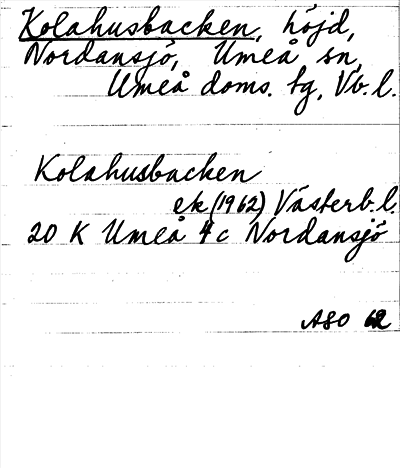 Kolahusbacken, höjd,
Nordansjö, Umeå sn,
Umeå doms. tg, Vb. l.
Kolahusbacken
ek (1962) Västerb. l.
20 K Umeå 4 c Nordansjö
ASO 62